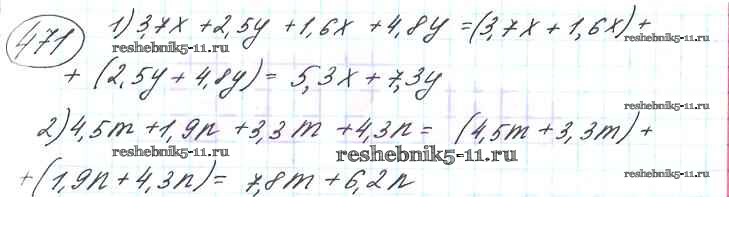 471 1) 3,7x + 2,5y + 1,6x + 4,8y = (3,7x + 1,6x) +
reshebnik5-11.ru reshebnik5-11.ru
+ (2,5y + 4,8y) = 5,3x + 7,3y
reshebnik5-11.ru
2) 4,5m + 1,9n + 3,3m + 4,3n = (4,5m + 3,3m) +
reshebnik5-11.ru reshebnik5-11.ru reshebnik5-11.ru
+ (1,9n + 4,3n) = 7,8m + 6,2n